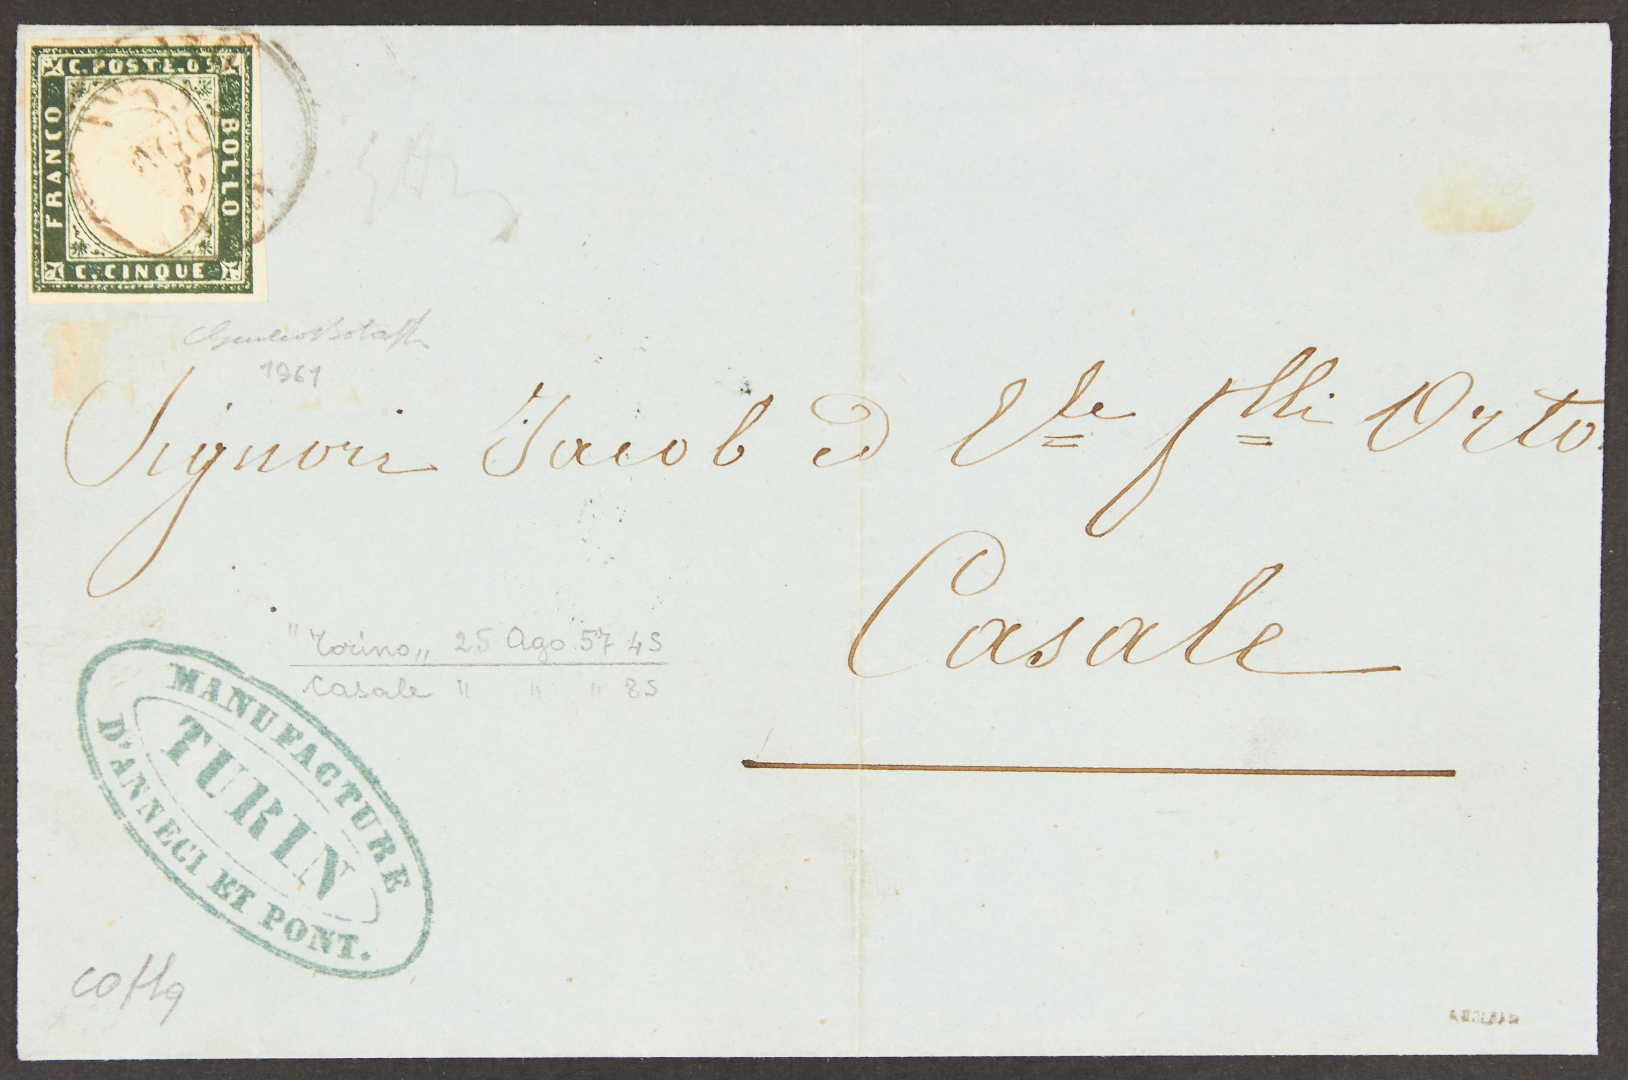 C. POSTE. 05
FRANCO
BOLLO
C. CINQUE
1961
Signori Jacob ed Vle flli Orto.
Casale
"Torino„ 25 Ago. 57 4S
Casale " " " 8S
MANUFACTURE
TURIN
D'ANNECI ET PONT.